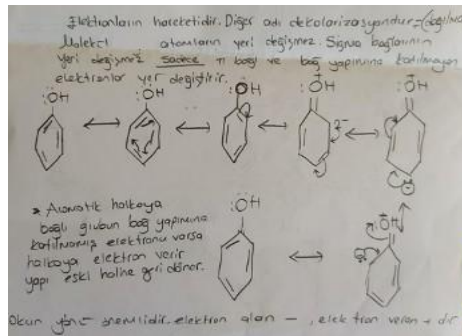 Elektronların hareketidir. Diğer adı dekolarizasyondur (dağılma
Molekül atomların yeri değişmez. Sigma bağlarının
yeri değişmez sadece π bağı ve bağ yapımına katılmayan
elektronlar yer değiştirir.
ÖH ÖH ÖH ÖH ÖH
* Aromatik halkaya
bağlı grubun bağ yapımına
katılmamış elektronu varsa
halkaya elektron verir
yapı eski haline geri döner.
ÖH ÖH
Okun yönü önemlidir. elektron alan - , elektron veren + dır